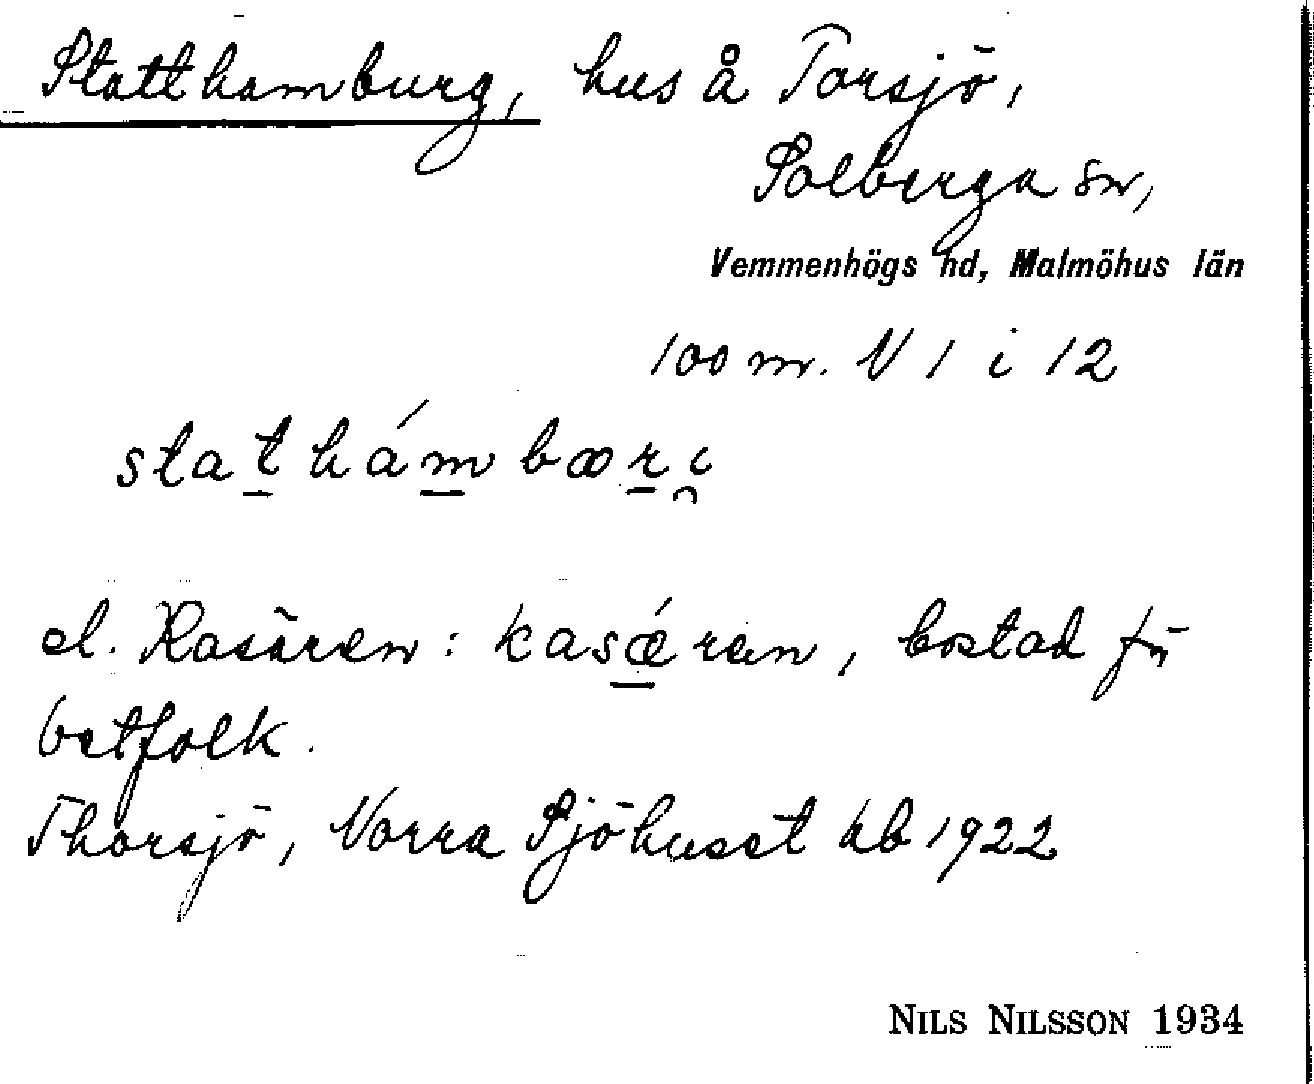 Statthamburg, hus å Torsjö,
Solberga sn,
Vemmenhögs hd, Malmöhus län
100 m. V 1 i 12
stat hám bœr i̯
el. Kasären: kasǽren, bostad för
betfolk.
Thorsjö, Norra Sjöhuset kb 1922
NILS NILSSON 1934